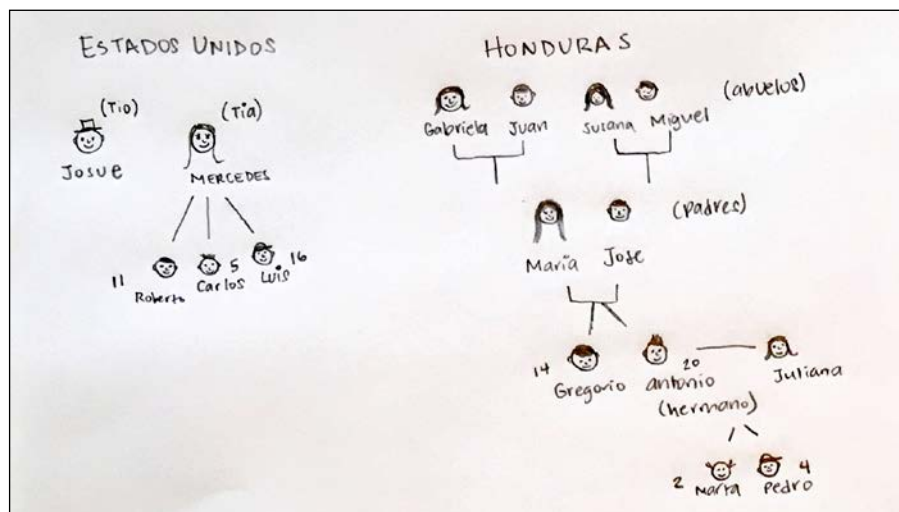 ESTADOS UNIDOS
(Tio)
Josue
(Tia)
MERCEDES
11
Roberto
5
Carlos
16
Luis
HONDURAS
Gabriela Juan Susana Miguel (abuelos)
Maria Jose (padres)
14 Gregorio
20 antonio
(hermano)
Juliana
2 Marta
Pedro 4